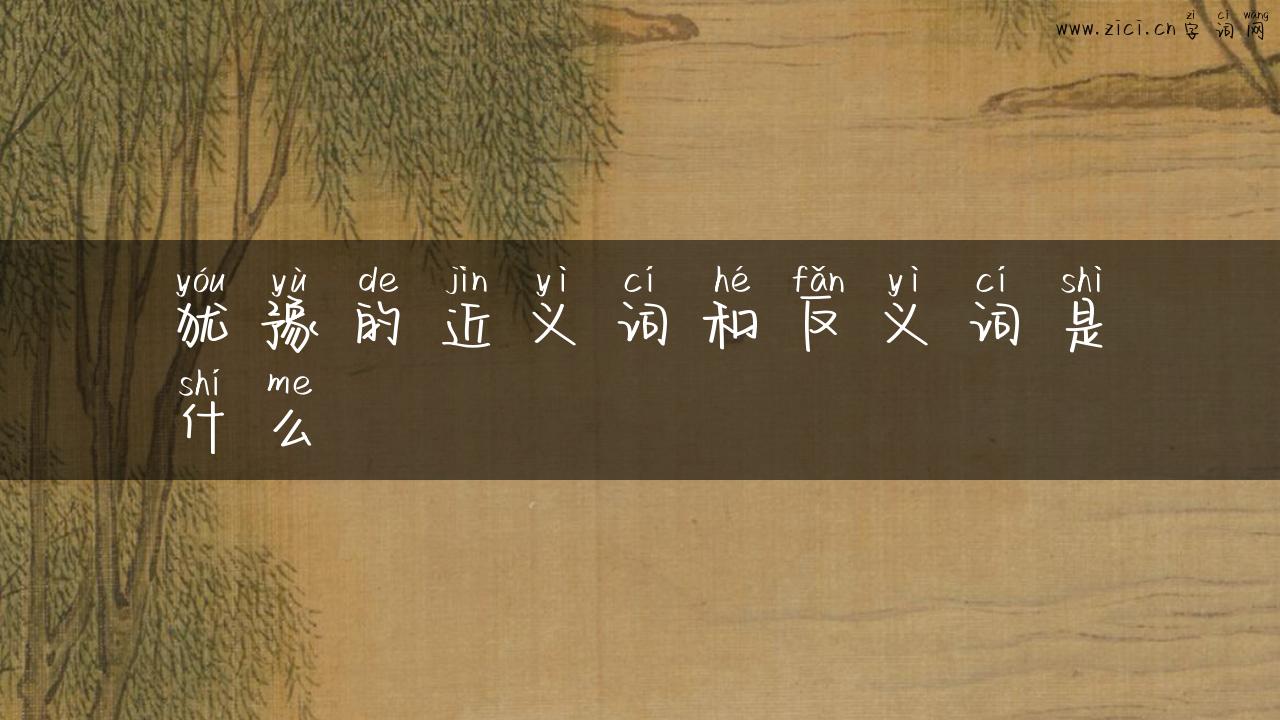 zì cí wǎng
www.zici.cn 字词网
yóu yù de jìn yì cí hé fǎn yì cí shì
犹豫的近义词和反义词是
shí me
什么